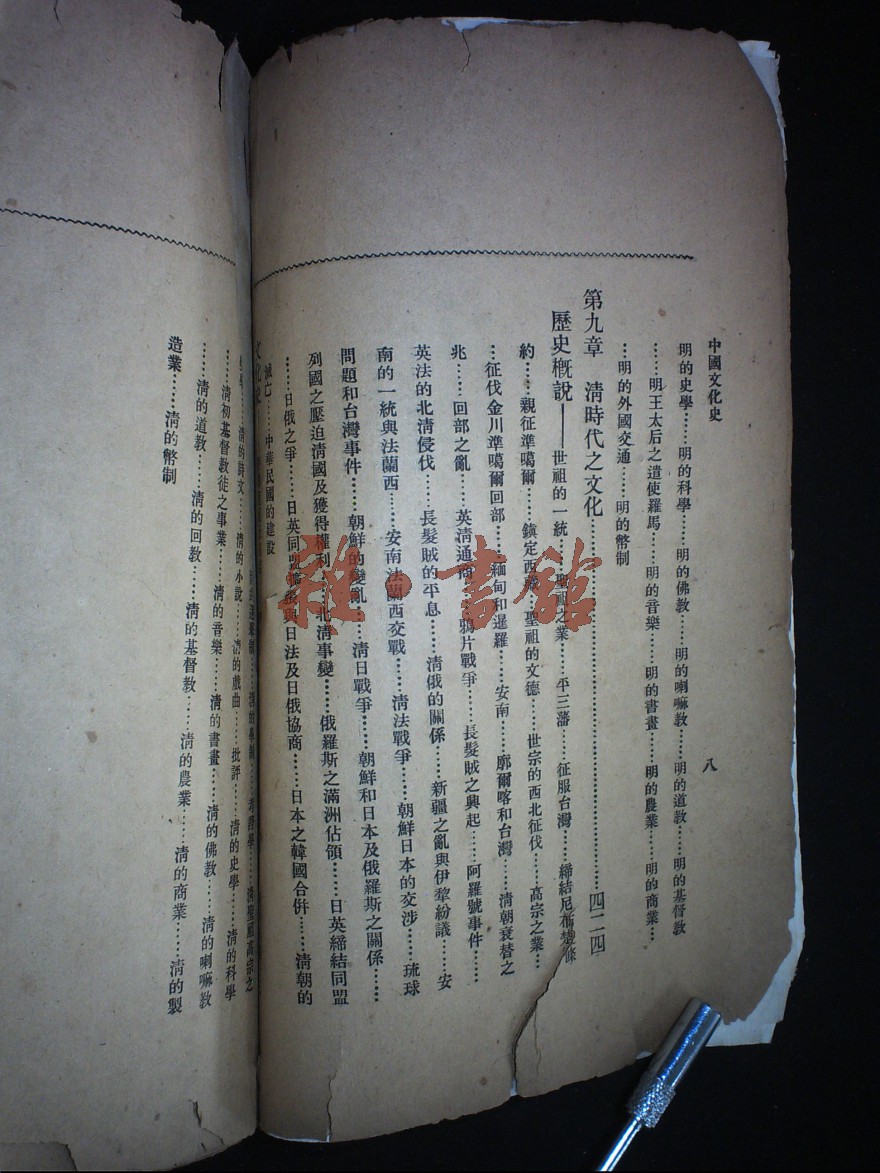 中國文化史
八
明的史學……明的科學……明的佛教……明的喇嘛教……明的道教……明的基督教
……明王太后之遣使羅馬……明的音樂……明的書畫……明的農業……明的商業…
…明的外國交通……明的幣制
第九章 清時代之文化……四二四
歷史概說——世祖的一統……聖祖之業……平三藩……征服台灣……締結尼布楚條
約……親征準噶爾……鎮定西藏……聖祖的文德……世宗的西北征伐……高宗之業…
…征伐金川準噶爾回部……緬甸和暹羅……安南……廓爾喀和台灣……清朝衰替之
兆……回部之亂……英清通商……鴉片戰爭……長髮賊之興起……阿羅號事件……
英法的北清侵伐……長髮賊的平息……清俄的關係……新疆之亂與伊犂紛議……安
南的一統與法蘭西……安南法蘭西交戰……清法戰爭……朝鮮日本的交涉……琉球
問題和台灣事件……朝鮮的變亂……清日戰爭……朝鮮和日本及俄羅斯之關係……
列國之壓迫清國及獲得權利……北清事變……俄羅斯之滿洲佔領……日英締結同盟
……日俄之爭……日英同盟擴張與日法及日俄協商……日本之韓國合併……清朝的
滅亡……中華民國的建設
文化史
考證學……清聖祖高宗之
……清的時文……清的小說……清的戲曲……批評……清的史學……清的科學
……清初基督教徒之事業……清的音樂……清的書畫……清的佛教……清的喇嘛教
……清的道教……清的回教……清的基督教……清的農業……清的商業……清的製
造業……清的幣制
雜·書館